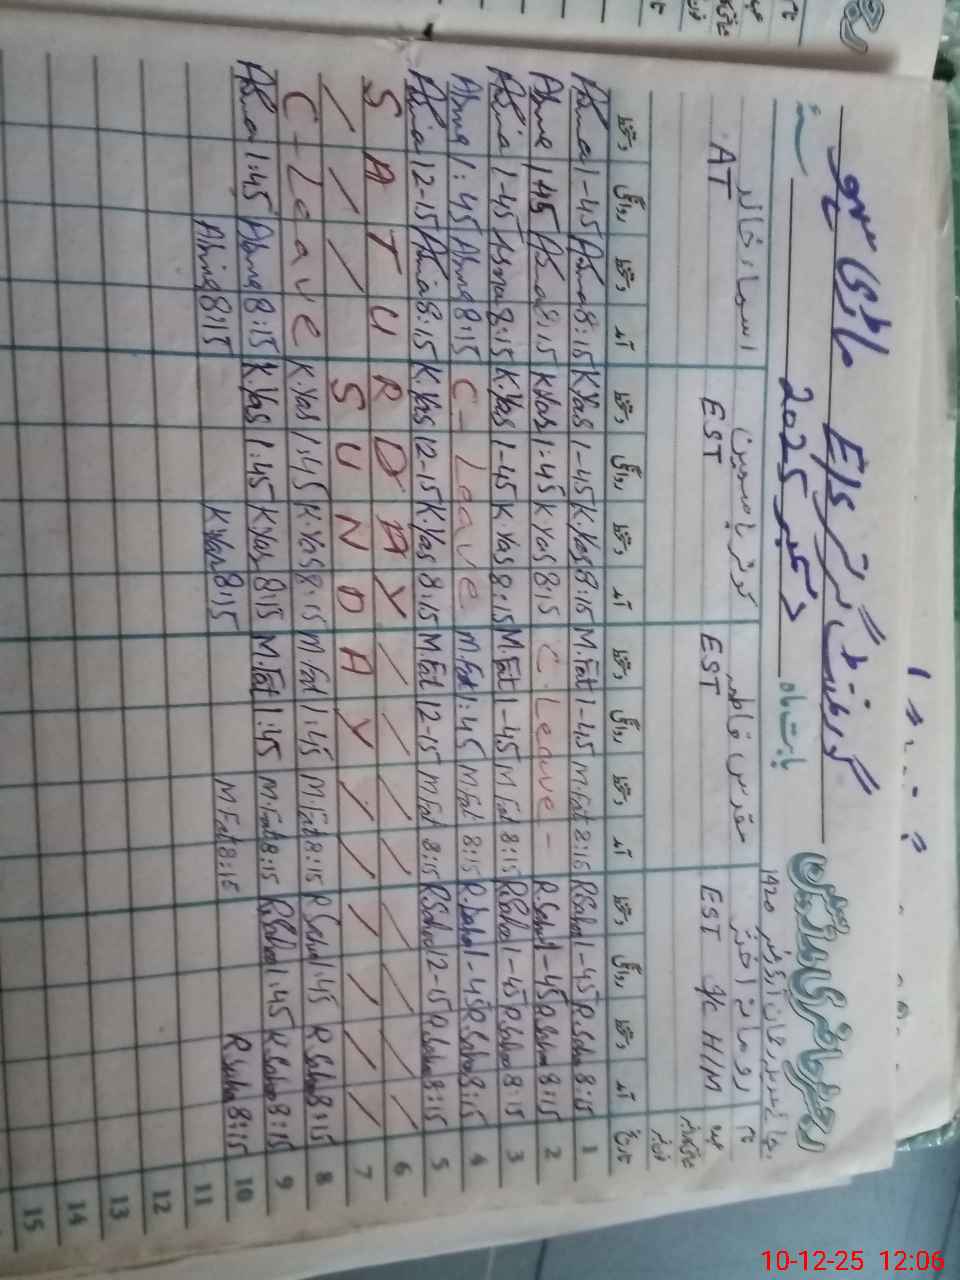 رجسٹر حاضری مدرسین گورنمنٹ گرلز E/S ماڑی
بابت ماہ دسمبر 2025 سنہ
نام مقدس فاطمہ کوثر یاسمین اسماء خالد
عہدہ EST i/c H/M EST EST AT
تاریخ آمد دستخط روانگی دستخط آمد دستخط روانگی دستخط آمد دستخط روانگی دستخط آمد دستخط روانگی دستخط
Asma 1-45 Asma 8:15 K.Yas 1-45 K.Yas 8:15 M.Fat 1-45 M.Fat 8:15 R.Saba 1-45 R.Saba 8:15 1
Asma 1:45 Asma 8:15 K.Yas 1:45 K.Yas 8:15 C-Leave- R.Saba 1-45 R.Saba 8:15 2
Asma 1-45 Asma 8:15 K.Yas 1-45 K.Yas 8:15 M.Fat 1-45 M.Fat 8:15 R.Saba 1-45 R.Saba 8:15 3
Asma 1:45 Asma 8:15 C-Leave M.Fat 1:45 M.Fat 8:15 R.Saba 1-45 R.Saba 8:15 4
Asma 12-15 Asma 8:15 K.Yas 12-15 K.Yas 8:15 M.Fat 12-15 M.Fat 8:15 R.Saba 12-15 R.Saba 8:15 5
SATURDAY 6
SUNDAY 7
C-Leave K.Yas 1:45 K.Yas 8:15 M.Fat 1:45 M.Fat 8:15 R.Saba 1:45 R.Saba 8:15 8
Asma 1:45 Asma 8:15 K.Yas 1:45 K.Yas 8:15 M.Fat 1:45 M.Fat 8:15 R.Saba 1:45 R.Saba 8:15 9
Asma 8:15 K.Yas 8:15 M.Fat 8:15 R.Saba 8:15 10
11
12
13
14
15
10-12-25 12:06